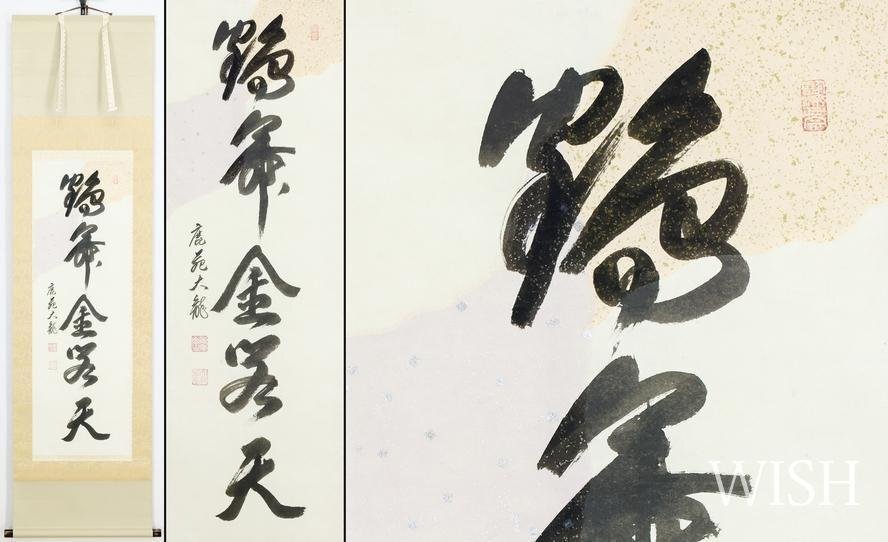 鶴舞金閣天
鹿苑大龍
鶴舞金閣天
鹿苑大龍
鶴舞
WISH